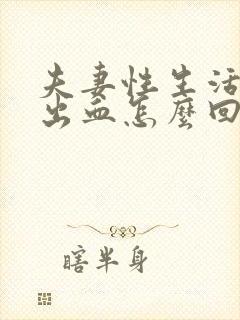 夫妻性生活
出血怎麼回
瞎半身